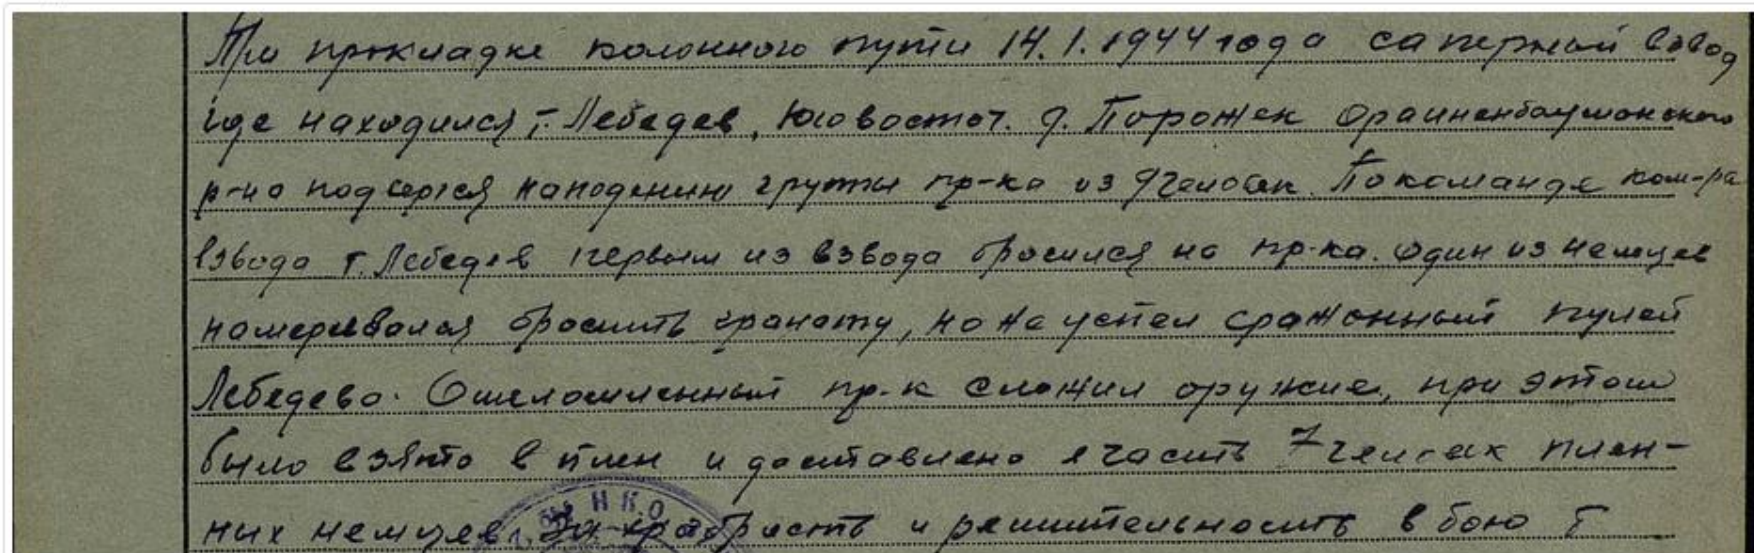 При прокладке колонного пути 14.1.1944 года саперный взвод
где находился т. Лебедев, юговосточ. д. Порожек Ораниенбаумского
р-на подвергся нападению группы пр-ка из 9 человек. По команде ком-ра
взвода т. Лебедев первым из взвода бросился на пр-ка. Один из немцев
намеревался бросить гранату, но не успел сражонный пулей
Лебедева. Ошеломленный пр-к сложил оружие, при этом
было взято в плен и доставлено в часть 7 человек плен-
ных немцев. За храбрость и решительность в бою т.
НКО